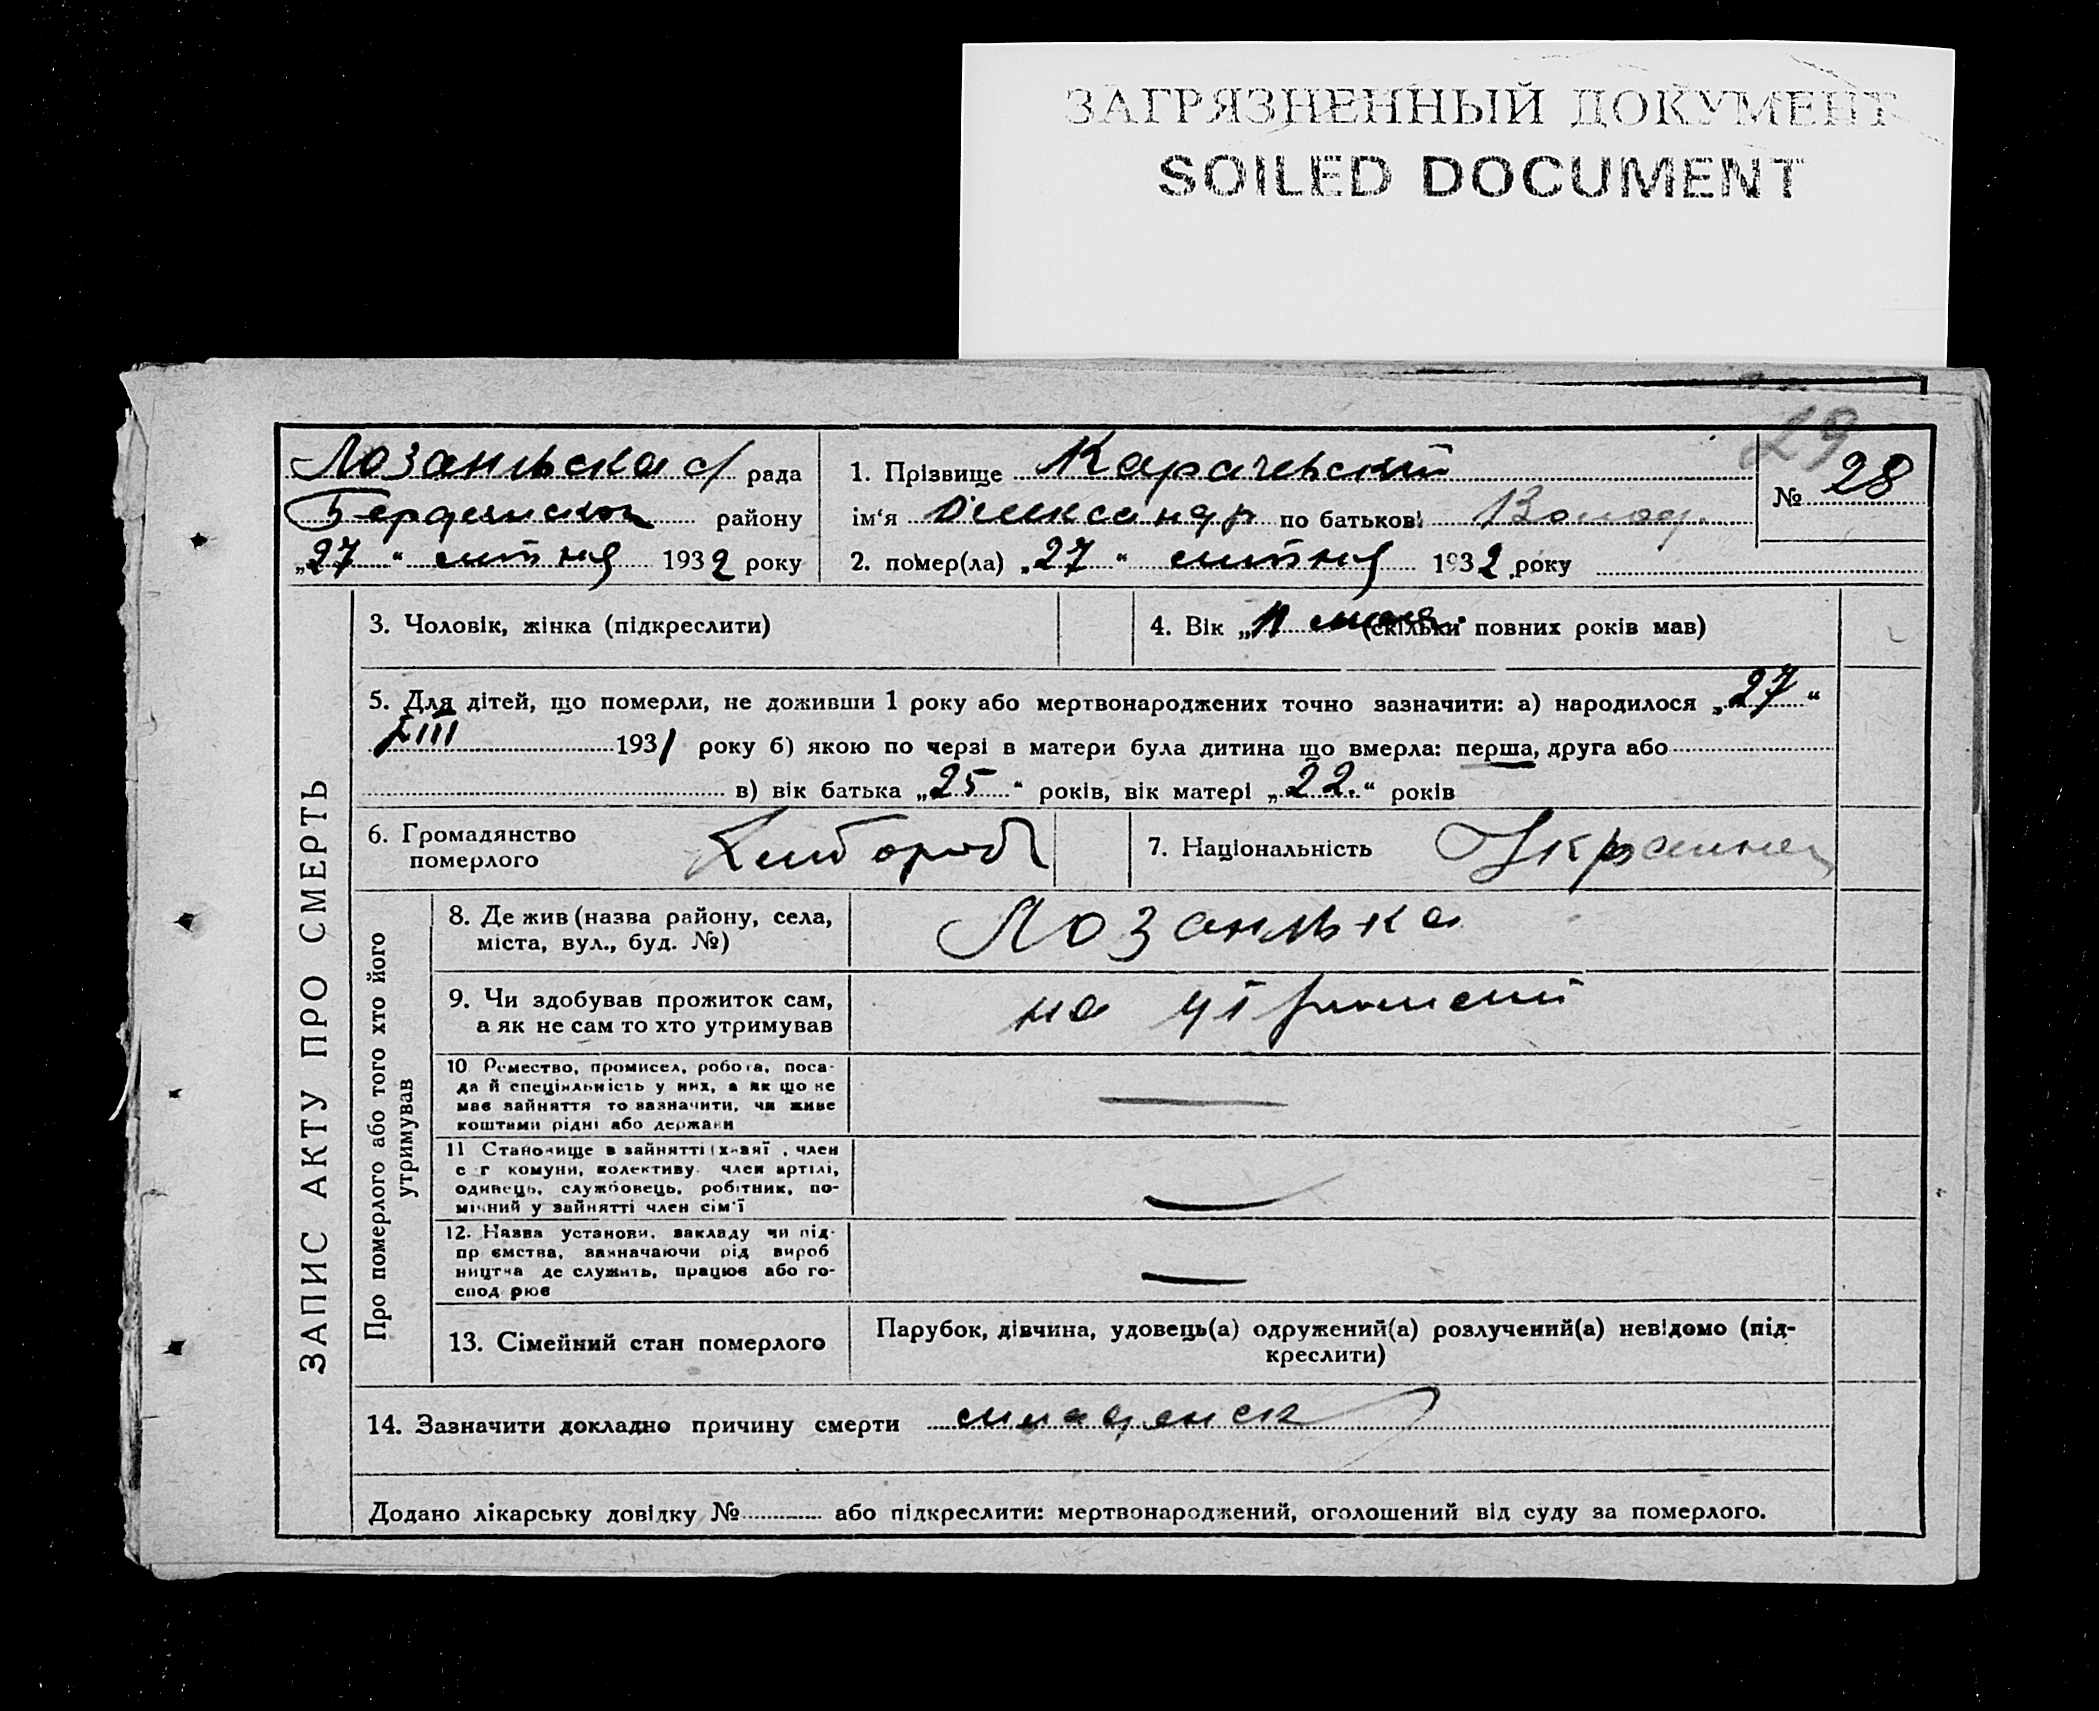 ЗАГРЯЗНЕННЫЙ ДОКУМЕНТ
SOILED DOCUMENT
29
рада
района
1. Прізвище Карачевський
№ 28
району
ім‘я Олександр по батькові Волод.
„27“ 1932 року
2. помер(ла) „27“ 1932 року
3. Чоловік, жінка (підкреслити)
4. Вік „11 (скільки повних років мав)
5. Для дітей, що померли, не доживши 1 року або мертвонароджених точно зазначити: а) народилося „27“
1931 року б) якою по черзі в матери була дитина що вмерла: перша, друга або
в) вік батька „25“ років, вік матері „22.“ років
6. Громадянство
померлого
7. Національність
8. Де жив (назва району, села,
міста, вул., буд. №)
9. Чи здобував прожиток сам,
а як не сам то хто утримував
на
10 Ремество, промисел, робота, поса-
да й спеціяльність у них, а як що не
має зайняття то зазначити, чи живе
коштами рідні або держави
11 Становище в зайнятті (хазяї, член
с г комуни, колективу, член артілі,
одинець, службовець, робітник, по-
мічний у зайнятті член сім‘ї
12. Назва установи, закладу чи під-
пр ємства, зазначаючи рід вироб
ництва де служить, працює або го-
спод рює
13. Сімейний стан померлого
Парубок, дівчина, удовець(а) одружений(а) розлучений(а) невідомо (під-
креслити)
14. Зазначити докладно причину смерти
Додано лікарську довідку № або підкреслити: мертвонароджений, оголошений від суду за померлого.
ЗАПИС АКТУ ПРО СМЕРТЬ
Про померлого або того хто його
утримував